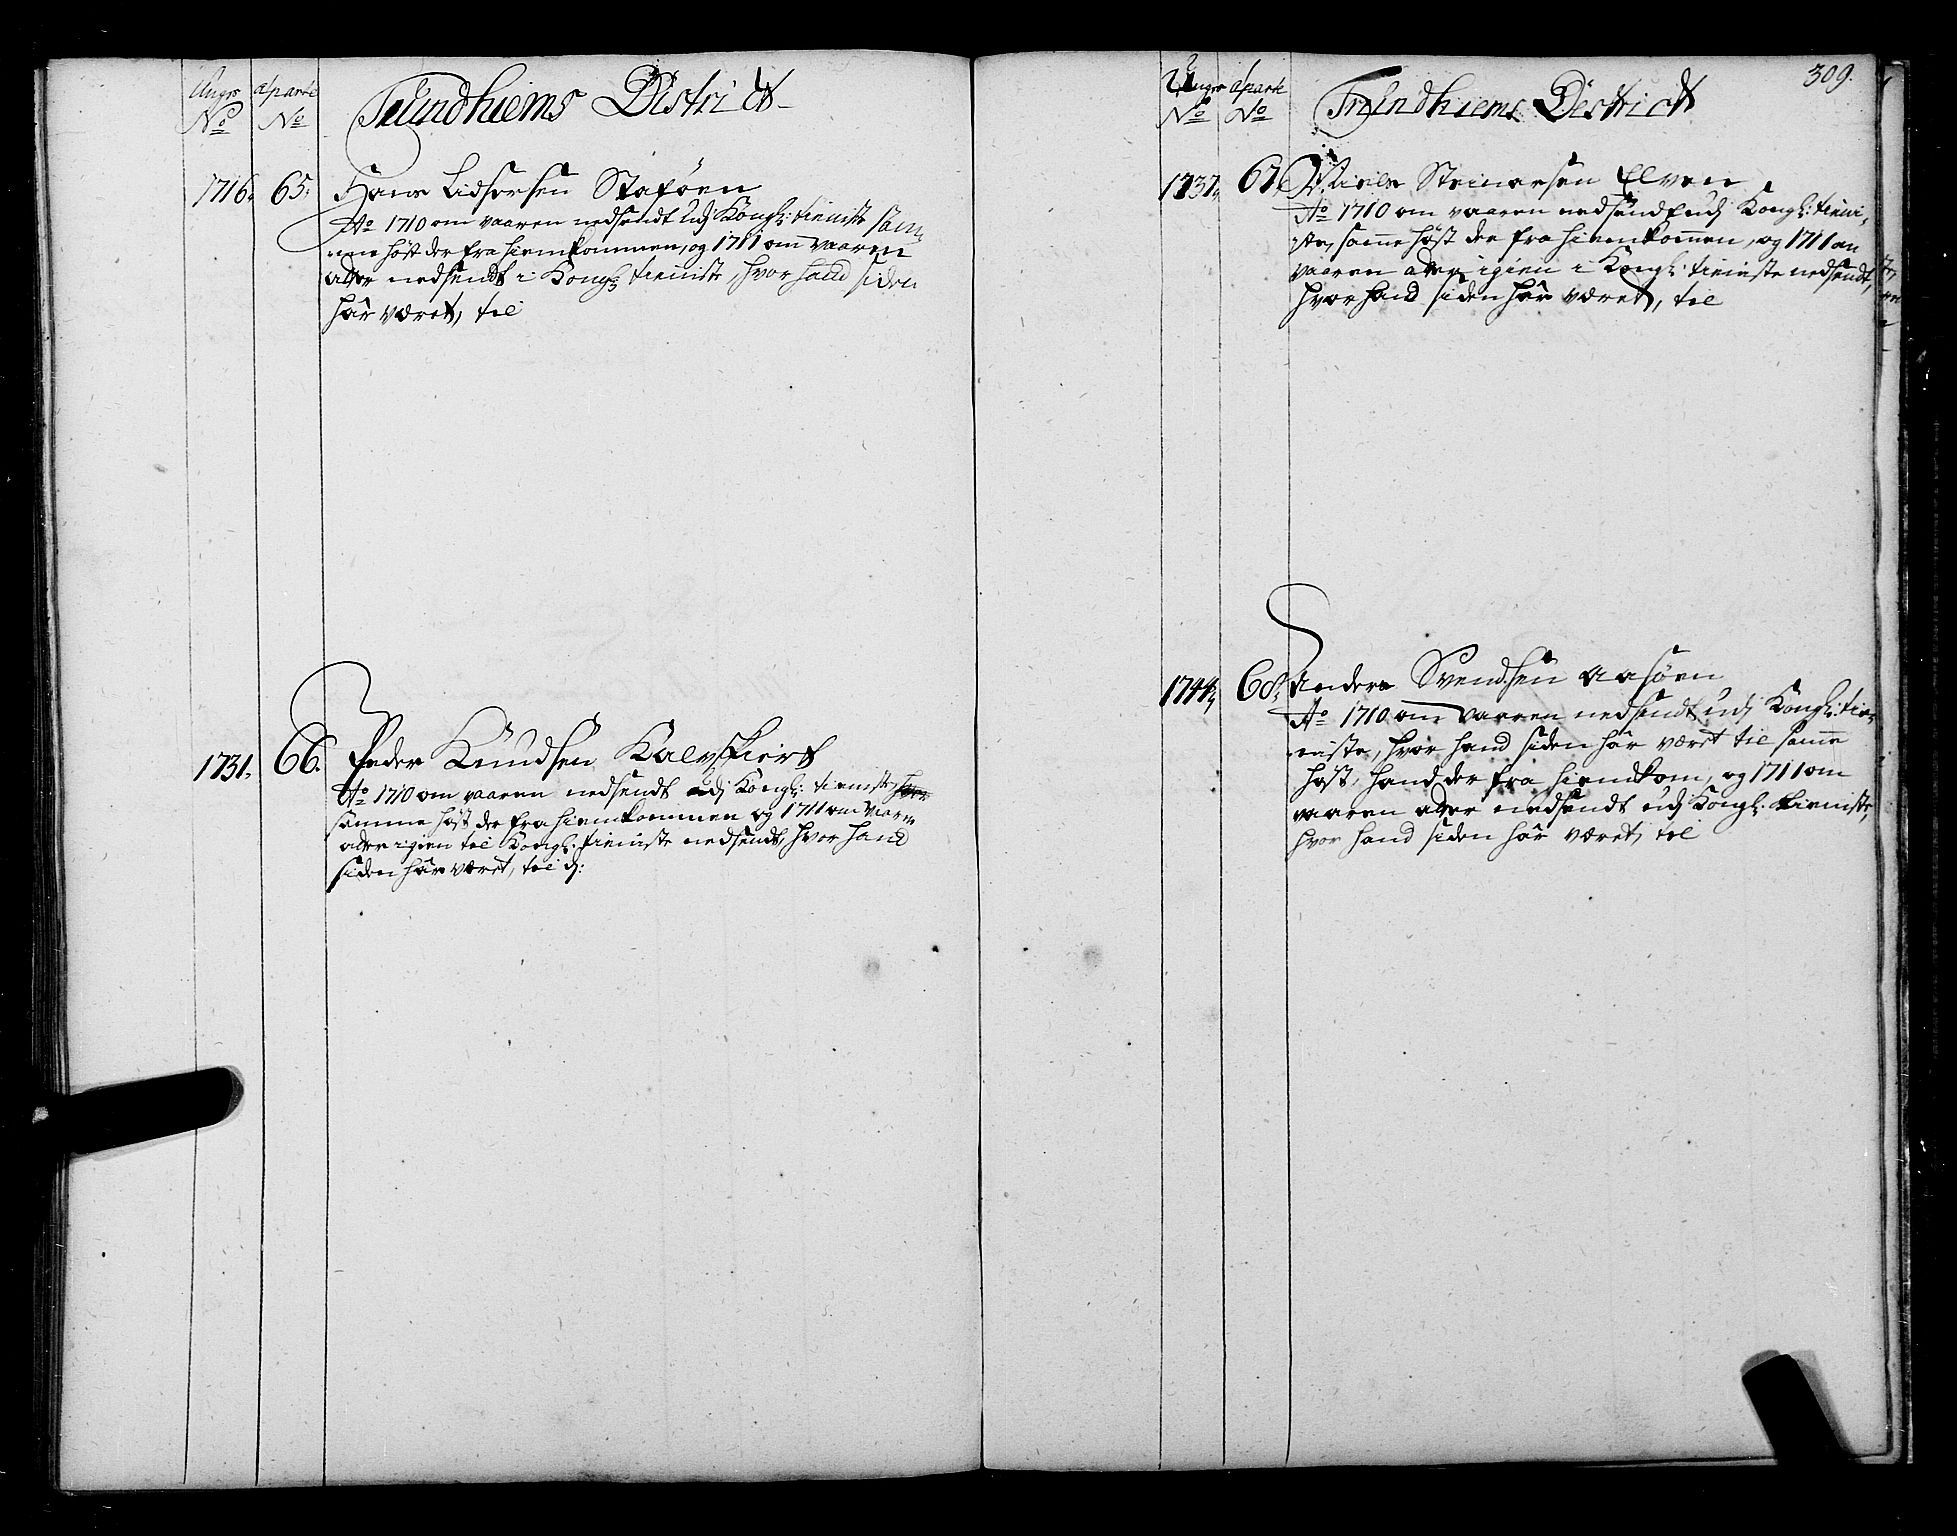 Ungrs aparte
No No
Trundhiems District
1716. 65. Hans Lidsersen Staföen
Ao 1710 om vaaren nedsendt udj Kongl: tieniste sam-
me høst der fra hiemkommen, og 1711 om vaaren
atter nedsendt i Kongl: tieniste hvor hand siden
hår været, til
1731. 66. Peder Knudsen Kalvskiert
Ao 1710 om vaaren nedsendt udj Kongl: tieniste,
samme høst der fra hiemkommen og 1711 om vaaren
atter igien til Kongl: tieniste nedsendt, hvor hand
siden hår været, til d:
309.
Ungrs aparte
No No
Trundhiems District
1737. 67. Niels Steinersen Elven
Ao 1710 om vaaren nedsendt udj Kongl: tieni-
ste, samme høst der fra hiemkommen, og 1711 om
vaaren atter igien i Kongl: tieniste nedsendt,
hvor hand siden hår været, til
1744. 68. Anders Svendsen Aasöen
Ao 1710 om vaaren nedsendt udj Kongl: tie-
niste, hvor hand siden hår været til samme
høst, hand der fra hiemkom, og 1711 om
vaaren atter nedsendt udj Kongl: tieniste,
hvor hand siden hår været, til